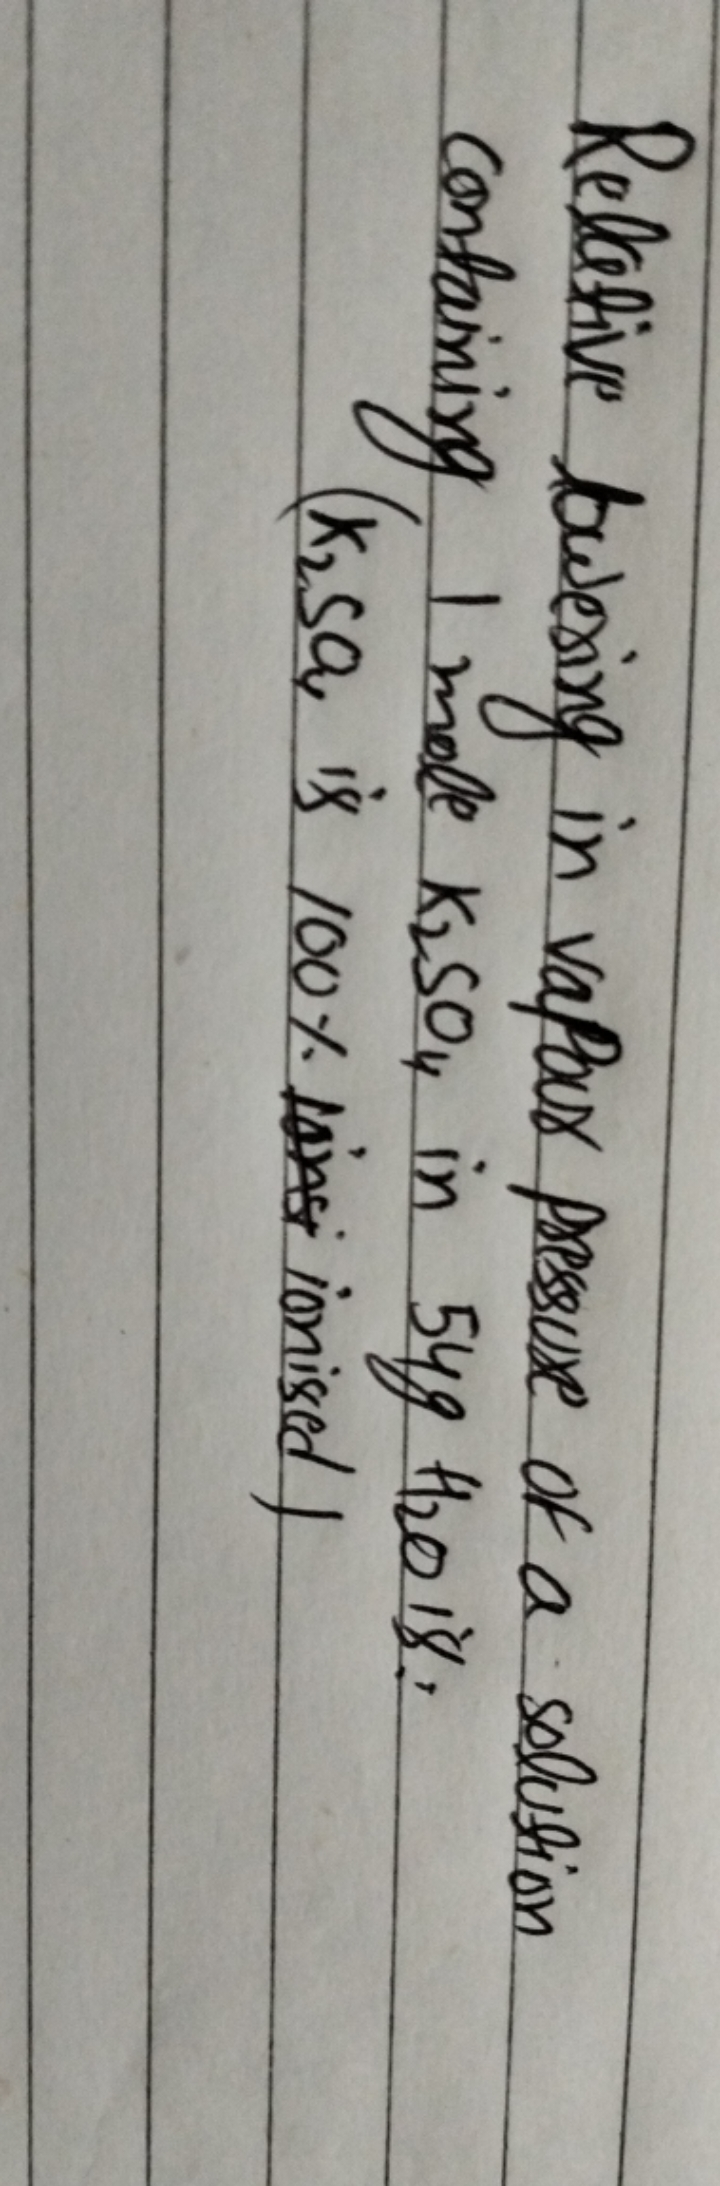 Relative lowering in vapour pressure of a solution
containing 1 mole K₂SO₄ in 54g H₂O is:
(K₂SO₄ is 100% ionised)